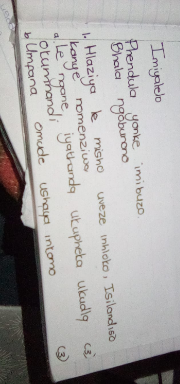 Imiyalelo
Phendula yonke imibuzo.
Bhala ngobunono
1. Hlaziya le misho uveze inhloko, Isilandiso
kanye nomenziwa (3)
a. Le ngane iyathanda ukupheka ukudla
okumnandi (3)
b. Umfana omude ushaya intomo